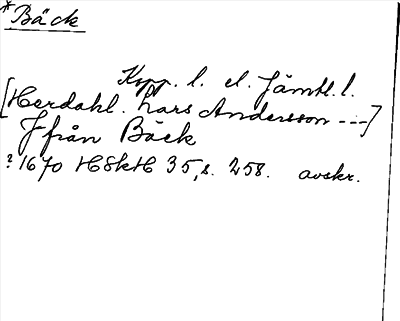 *Bäck
Kopp. l. el. Jämtl. l.
[Herdahl. Lars Andersson ---]
J från Bäck
? 1670 HSkH 35, s. 258. avskr.